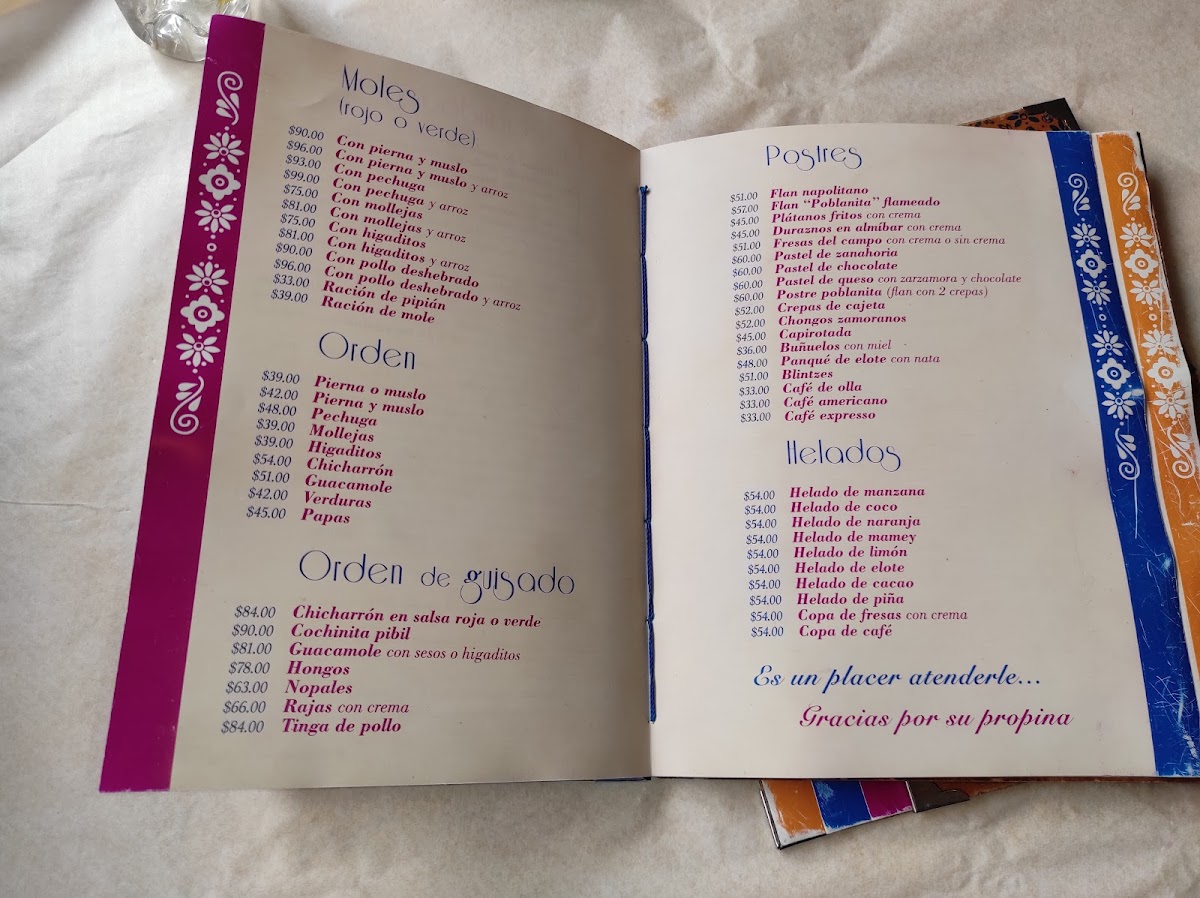 Moles
(rojo o verde)
$90.00 Con pierna y muslo
$96.00 Con pierna y muslo y arroz
$93.00 Con pechuga
$99.00 Con pechuga y arroz
$75.00 Con mollejas
$81.00 Con mollejas y arroz
$75.00 Con higaditos
$81.00 Con higaditos y arroz
$90.00 Con pollo deshebrado
$96.00 Con pollo deshebrado y arroz
$33.00 Ración de pipián
$39.00 Ración de mole
Orden
$39.00 Pierna o muslo
$42.00 Pierna y muslo
$48.00 Pechuga
$39.00 Mollejas
$39.00 Higaditos
$54.00 Chicharrón
$51.00 Guacamole
$42.00 Verduras
$45.00 Papas
Orden de guisado
$84.00 Chicharrón en salsa roja o verde
$90.00 Cochinita pibil
$81.00 Guacamole con sesos o higaditos
$78.00 Hongos
$63.00 Nopales
$66.00 Rajas con crema
$84.00 Tinga de pollo
Postres
$51.00 Flan napolitano
$57.00 Flan "Poblanita" flameado
$45.00 Plátanos fritos con crema
$45.00 Duraznos en almíbar con crema
$51.00 Fresas del campo con crema o sin crema
$60.00 Pastel de zanahoria
$60.00 Pastel de chocolate
$60.00 Pastel de queso con zarzamora y chocolate
$60.00 Postre poblanita (flan con 2 crepas)
$52.00 Crepas de cajeta
$52.00 Chongos zamoranos
$45.00 Capirotada
$36.00 Buñuelos con miel
$48.00 Panqué de elote con nata
$51.00 Blintzes
$33.00 Café de olla
$33.00 Café americano
$33.00 Café expresso
Helados
$54.00 Helado de manzana
$54.00 Helado de coco
$54.00 Helado de naranja
$54.00 Helado de mamey
$54.00 Helado de limón
$54.00 Helado de elote
$54.00 Helado de cacao
$54.00 Helado de piña
$54.00 Copa de fresas con crema
$54.00 Copa de café
Es un placer atenderle...
Gracias por su propina